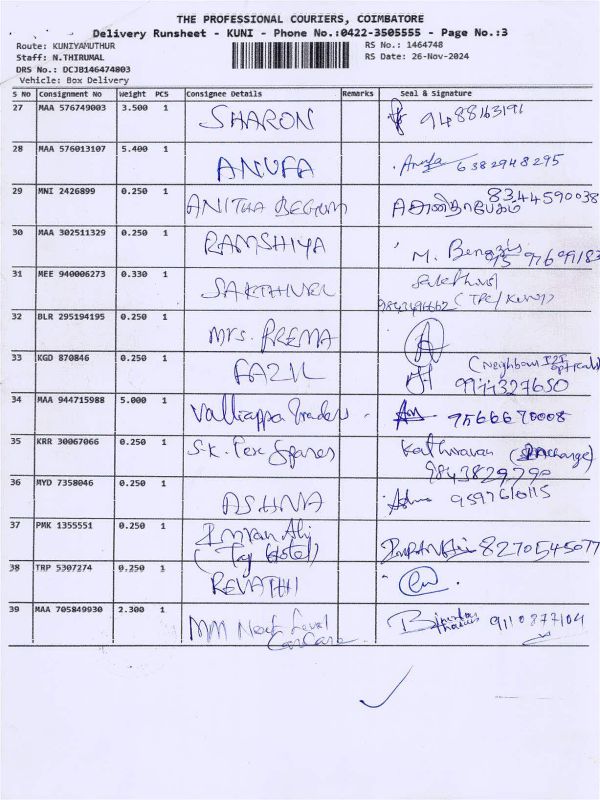 THE PROFESSIONAL COURIERS, COIMBATORE
Delivery Runsheet - KUNI - Phone No.:0422-3505555 - Page No.:3
Route: KUNIYAMUTHUR RS No.: 1464748
Staff: N.THIRUMAL RS Date: 26-Nov-2024
DRS No.: DCJB146474803
Vehicle: Box Delivery
S No Consignment No Weight PCS Consignee Details Remarks Seal & Signature
27 MAA 576749003 3.500 1 SHARON 9488163191
28 MAA 576013107 5.400 1 ANUFA Anufa 6382948295
29 MNI 2426899 0.250 1 ANITHA BEGUM 8344590038
அனிதாபேகம்
30 MAA 302511329 0.250 1 RAMSHIYA M.
31 MEE 940006273 0.330 1 SAKTHIVEL Sakthivel
32 BLR 295194195 0.250 1 MRS. PREMA
33 KGD 870846 0.250 1 FAZIL (Neighbour
9944327650
34 MAA 944715988 5.000 1 Valliappa Traders 9566670008
35 KRR 30067066 0.250 1 S.K. Tex Spares Kathiravan (Incharge)
9843829790
36 MYD 7358046 0.250 1 ASHNA 9597610115
37 PMK 1355551 0.250 1 Imran Ali
(Taj Hotel) Imran Ali 8270545077
38 TRP 5307274 0.250 1 REVATHI
39 MAA 705849930 2.300 1 MM Next Level 9110877104
CarCare